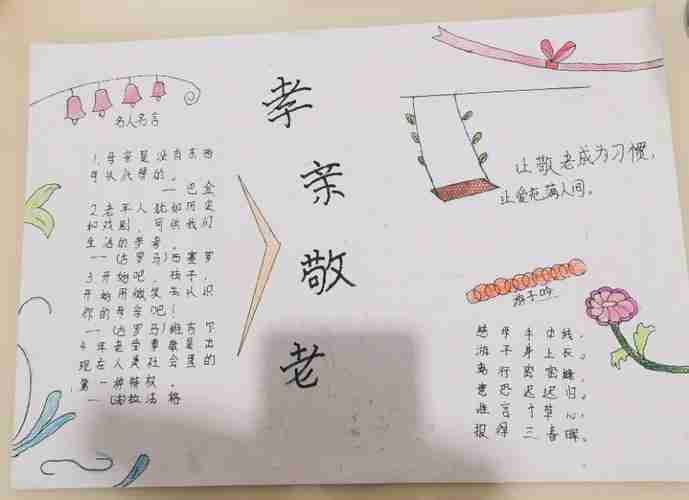 名人名言
1.母亲是没有东西
可以代替的。
— 巴金
2.老年人犹如历史
和戏剧,可供我们
生活的参考。
—(古罗马)西塞罗
3.开始吧,孩子,
开始用微笑去认识
你的母亲吧!
—(古罗马)维吉尔
4.年老受尊敬是出
现在人类社会里的
第一种特权。
—拉法格
孝亲敬老
让敬老成为习惯,
让爱充满人间。
游子吟
慈母手中线,
游子身上衣。
临行密密缝,
意恐迟迟归。
谁言寸草心,
报得三春晖。